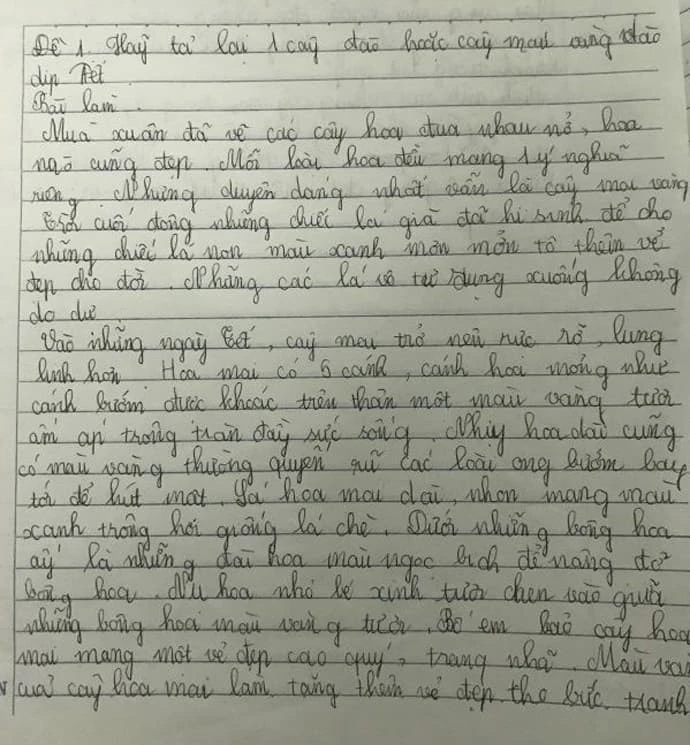 Đề 1. Hãy tả lại 1 cây đào hoặc cây mai vàng vào
dịp Tết
Bài làm.
Mùa xuân đã về các cây hoa đua nhau nở, hoa
nào cũng đẹp. Mỗi loài hoa đều mang 1 ý nghĩa
riêng. Nhưng duyên dáng nhất vẫn là cây mai vàng
Tới cuối đông những chiếc lá già đã hi sinh để cho
những chiếc lá non màu xanh mơn mởn tô thêm vẻ
đẹp cho đời. Nhằng các lá vô tư rụng xuống không
do dự.
Vào những ngày Tết, cây mai trở nên rực rỡ, lung
linh hơn. Hoa mai có 5 cánh, cánh hoa mỏng như
cánh bướm được khoác trên thân một màu vàng tươi
ấm áp trông tràn đầy sức sống. Nhụy hoa dài cũng
có màu vàng thường quyến rũ các loài ong bướm bay
tới để hút mật. Lá hoa mai dài, nhọn mang màu
xanh trông hơi giống lá chè. Dưới những bông hoa
ấy là những đài hoa màu ngọc bích để nâng đỡ
bông hoa. Nụ hoa nhỏ bé xinh tươi chen vào giữa
những bông hoa màu vàng tươi. Bố em bảo cây hoa
mai mang một vẻ đẹp cao quý, trang nhã. Màu vàn
của cây hoa mai làm tăng thêm vẻ đẹp cho bức tranh